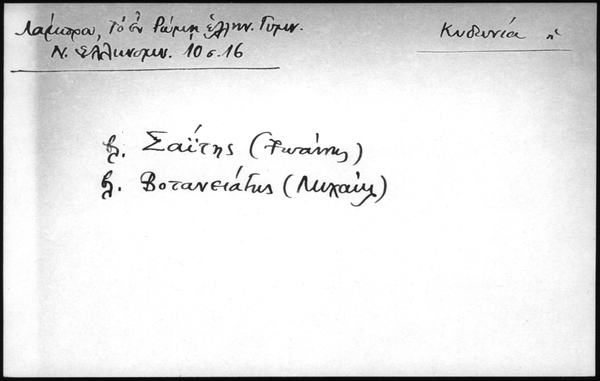 Λάμπρου, Τὸ ἐν Ῥώμῃ ἑλλην. Γυμν.
Ν. Ἑλληνομν. 10 σ. 16
Κυδωνία
βλ. Σαΐτης (Ἰωάννης)
βλ. Βοτανειάτης (Μιχαήλ)